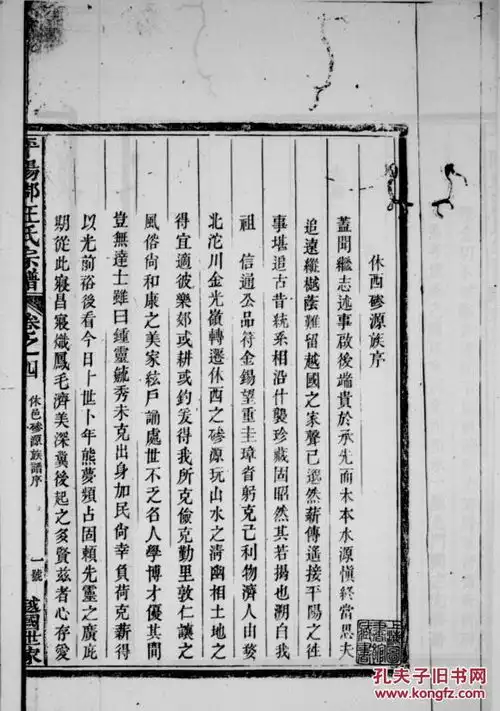 休西磣源族序
蓋聞繼志述事啟後端貴於承先而木本水源愼終當思夫
追遠縱樾蔭難留越國之家聲已邈然薪傳遙接平陽之徃
事堪追古昔統系相沿什襲珍藏固昭然其若揭也溯自我
祖　信通公品符金錫望重圭璋省躬克己利物濟人由婺
北沱川金光嶺轉遷休西之磣源玩山水之清幽相土地之
得宜適彼樂郊或耕或釣爰得我所克儉克勤里敦仁讓之
風俗尙和康之美家絃戶誦處世不乏名人學博才優其間
豈無達士雖曰鍾靈毓秀未克出身加民尙幸負荷克薪得
以光前裕後看今日卜世卜年熊夢頻占固賴先靈之廣庇
期從此寢昌寢熾鳳毛濟美深冀後起之多賢兹者心存愛
平陽郡汪氏宗譜
卷之四
休邑磣源族譜序
一號
越國世家
孔夫子旧书网
www.kongfz.com